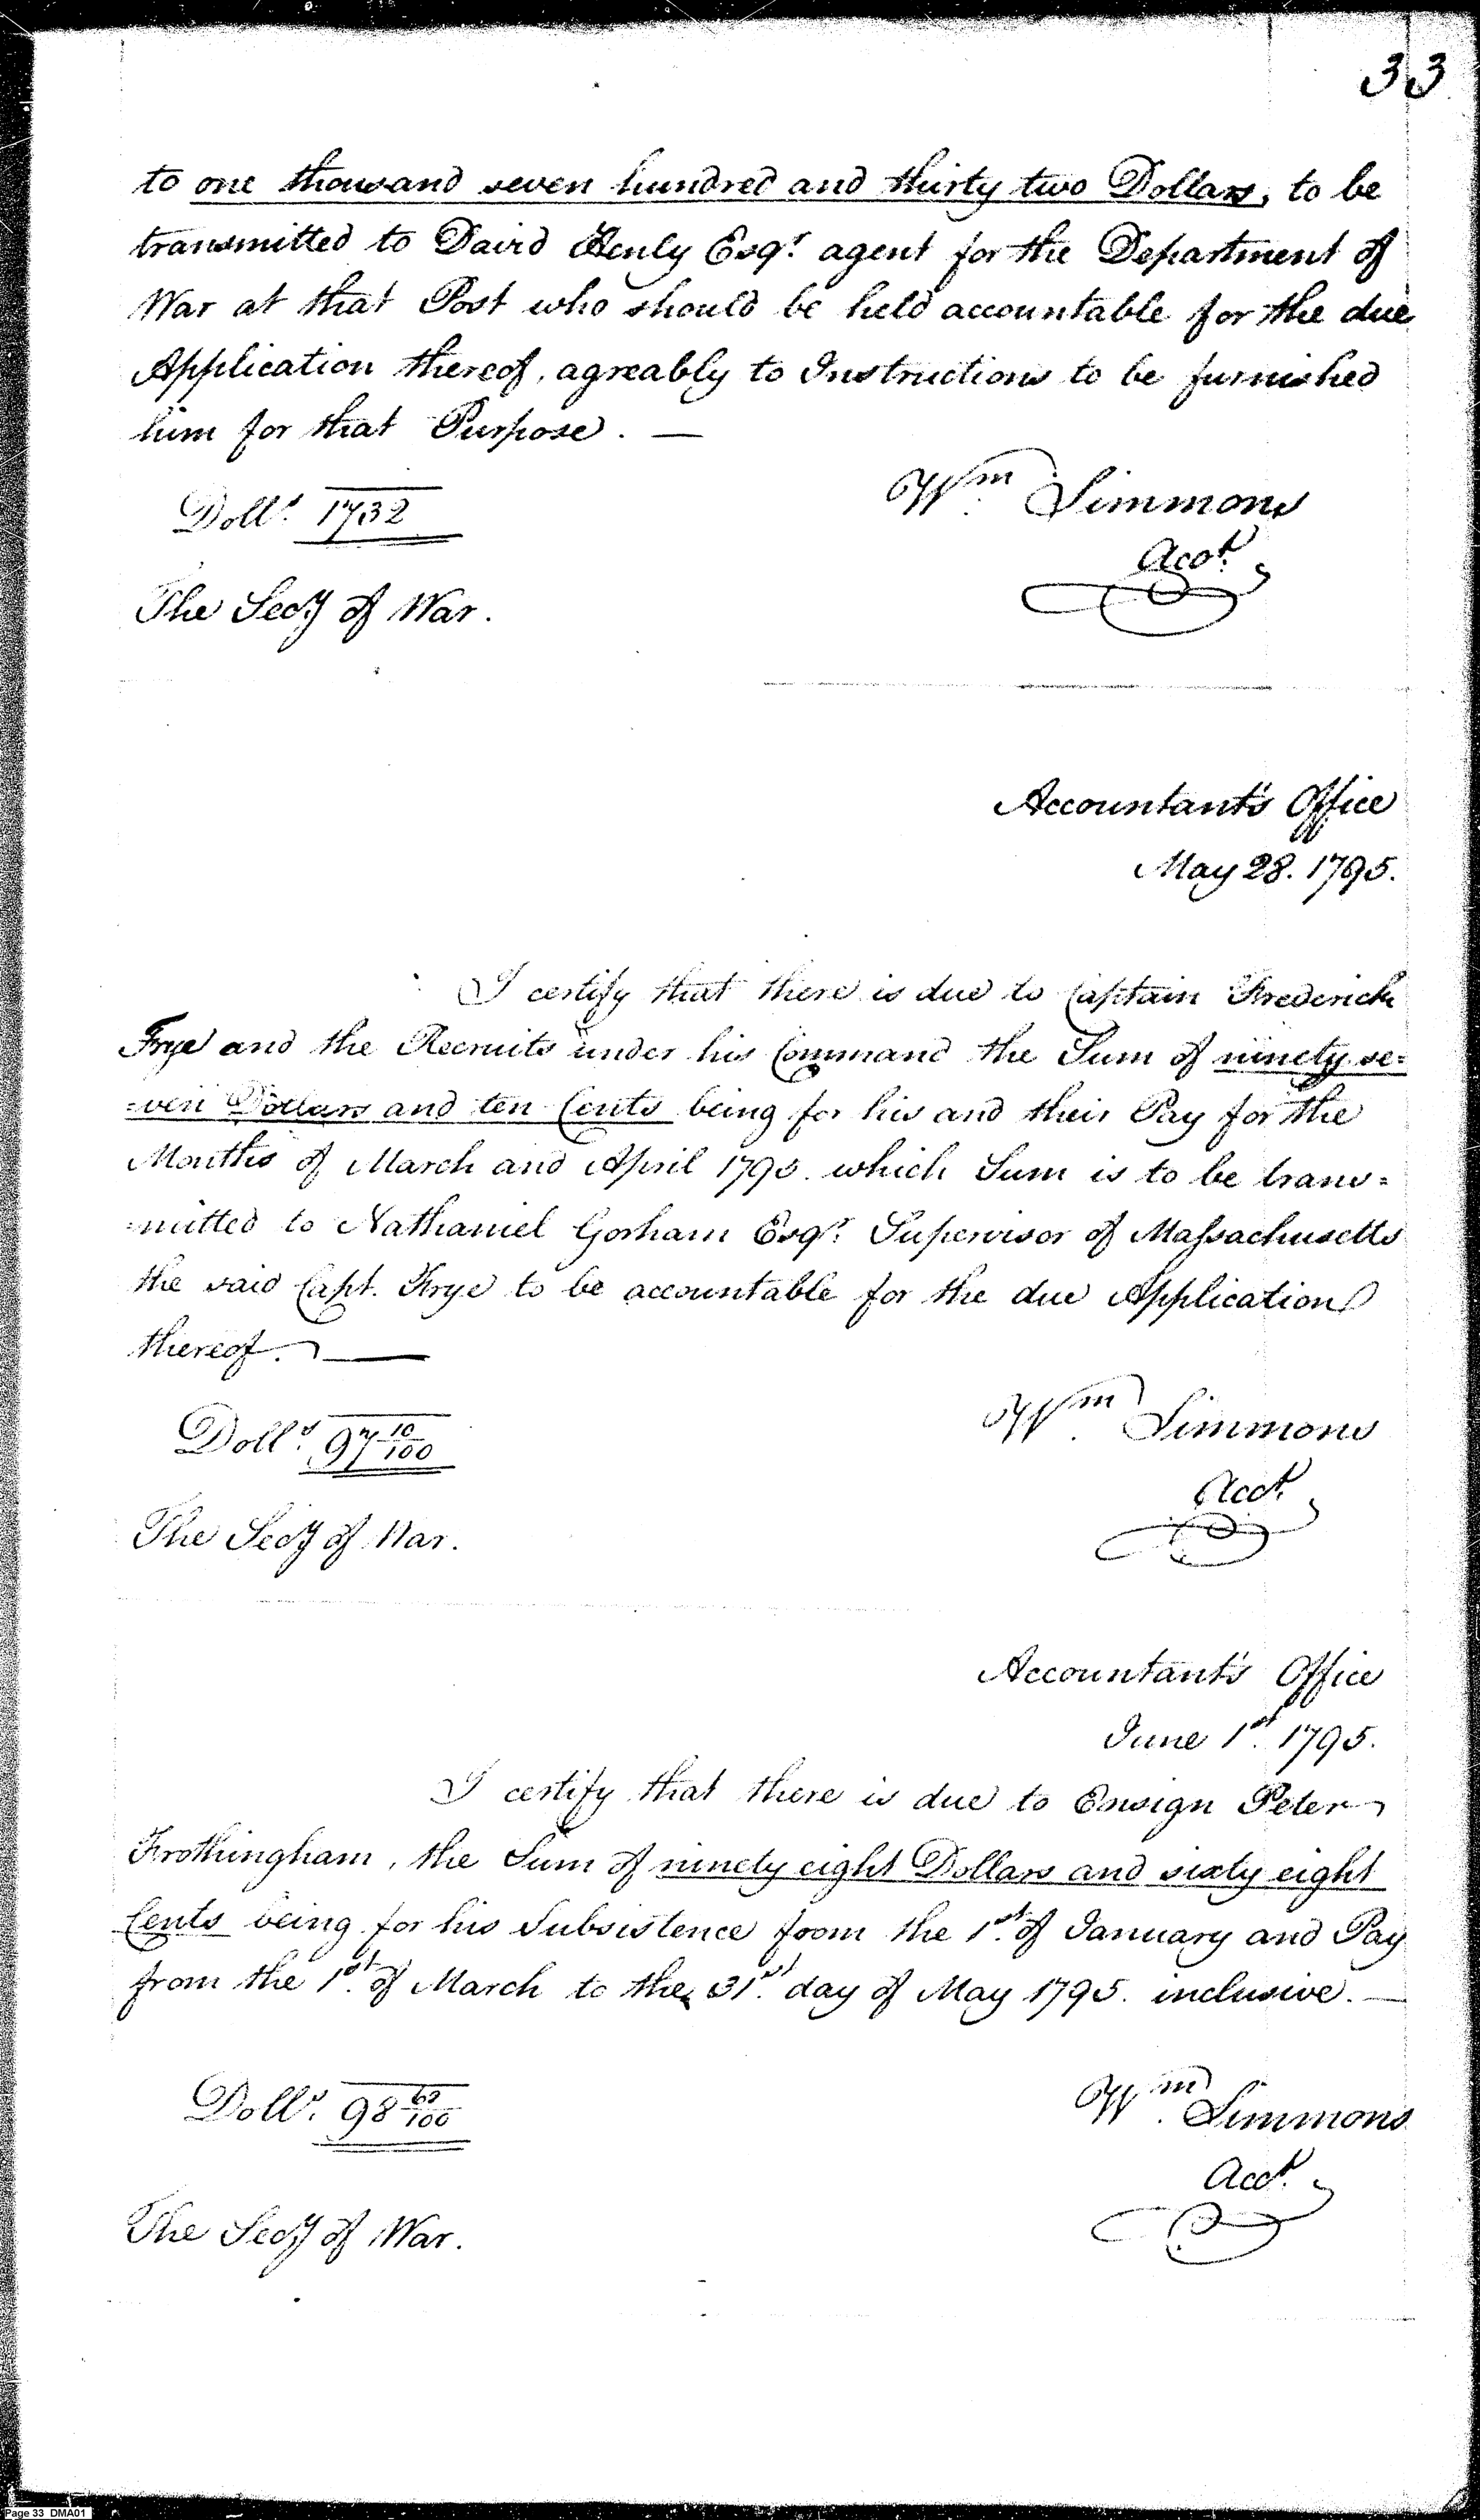 33
to one thousand seven hundred and thirty two Dollars, to be
transmitted to David Henly Esqr. agent for the Department of
War at that Post who should be held accountable for the due
Application thereof, agreably to Instructions to be furnished
him for that Purpose. —
Dolls. 1732
Wm. Simmons
Acct.
The Secy of War.
Accountant's Office
May 28. 1795.
I certify that there is due to Captain Frederick
Frye and the Recruits under his Command the Sum of ninety se=
=ven Dollars and ten Cents being for his and their Pay for the
Months of March and April 1795. which Sum is to be trans=
=mitted to Nathaniel Gorham Esqr. Supervisor of Massachusetts
the said Capt. Frye to be accountable for the due Application
thereof. —
Dolls. 97 10/100
Wm. Simmons
Acct.
The Secy of War.
Accountant's Office
June 1st. 1795.
I certify that there is due to Ensign Peter
Frothingham, the Sum of ninety eight Dollars and sixty eight
Cents being for his Subsistence from the 1st. of January and Pay
from the 1st. of March to the 31st. day of May 1795. inclusive. —
Dolls. 98 68/100
Wm. Simmons
Acct.
The Secy of War.
Page 33 DMA01